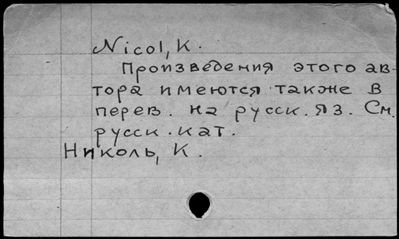 Nicol, K.
Произведения этого ав-
тора имеются также в
перев. на русск. яз. См.
русск. кат.
Николь, К.